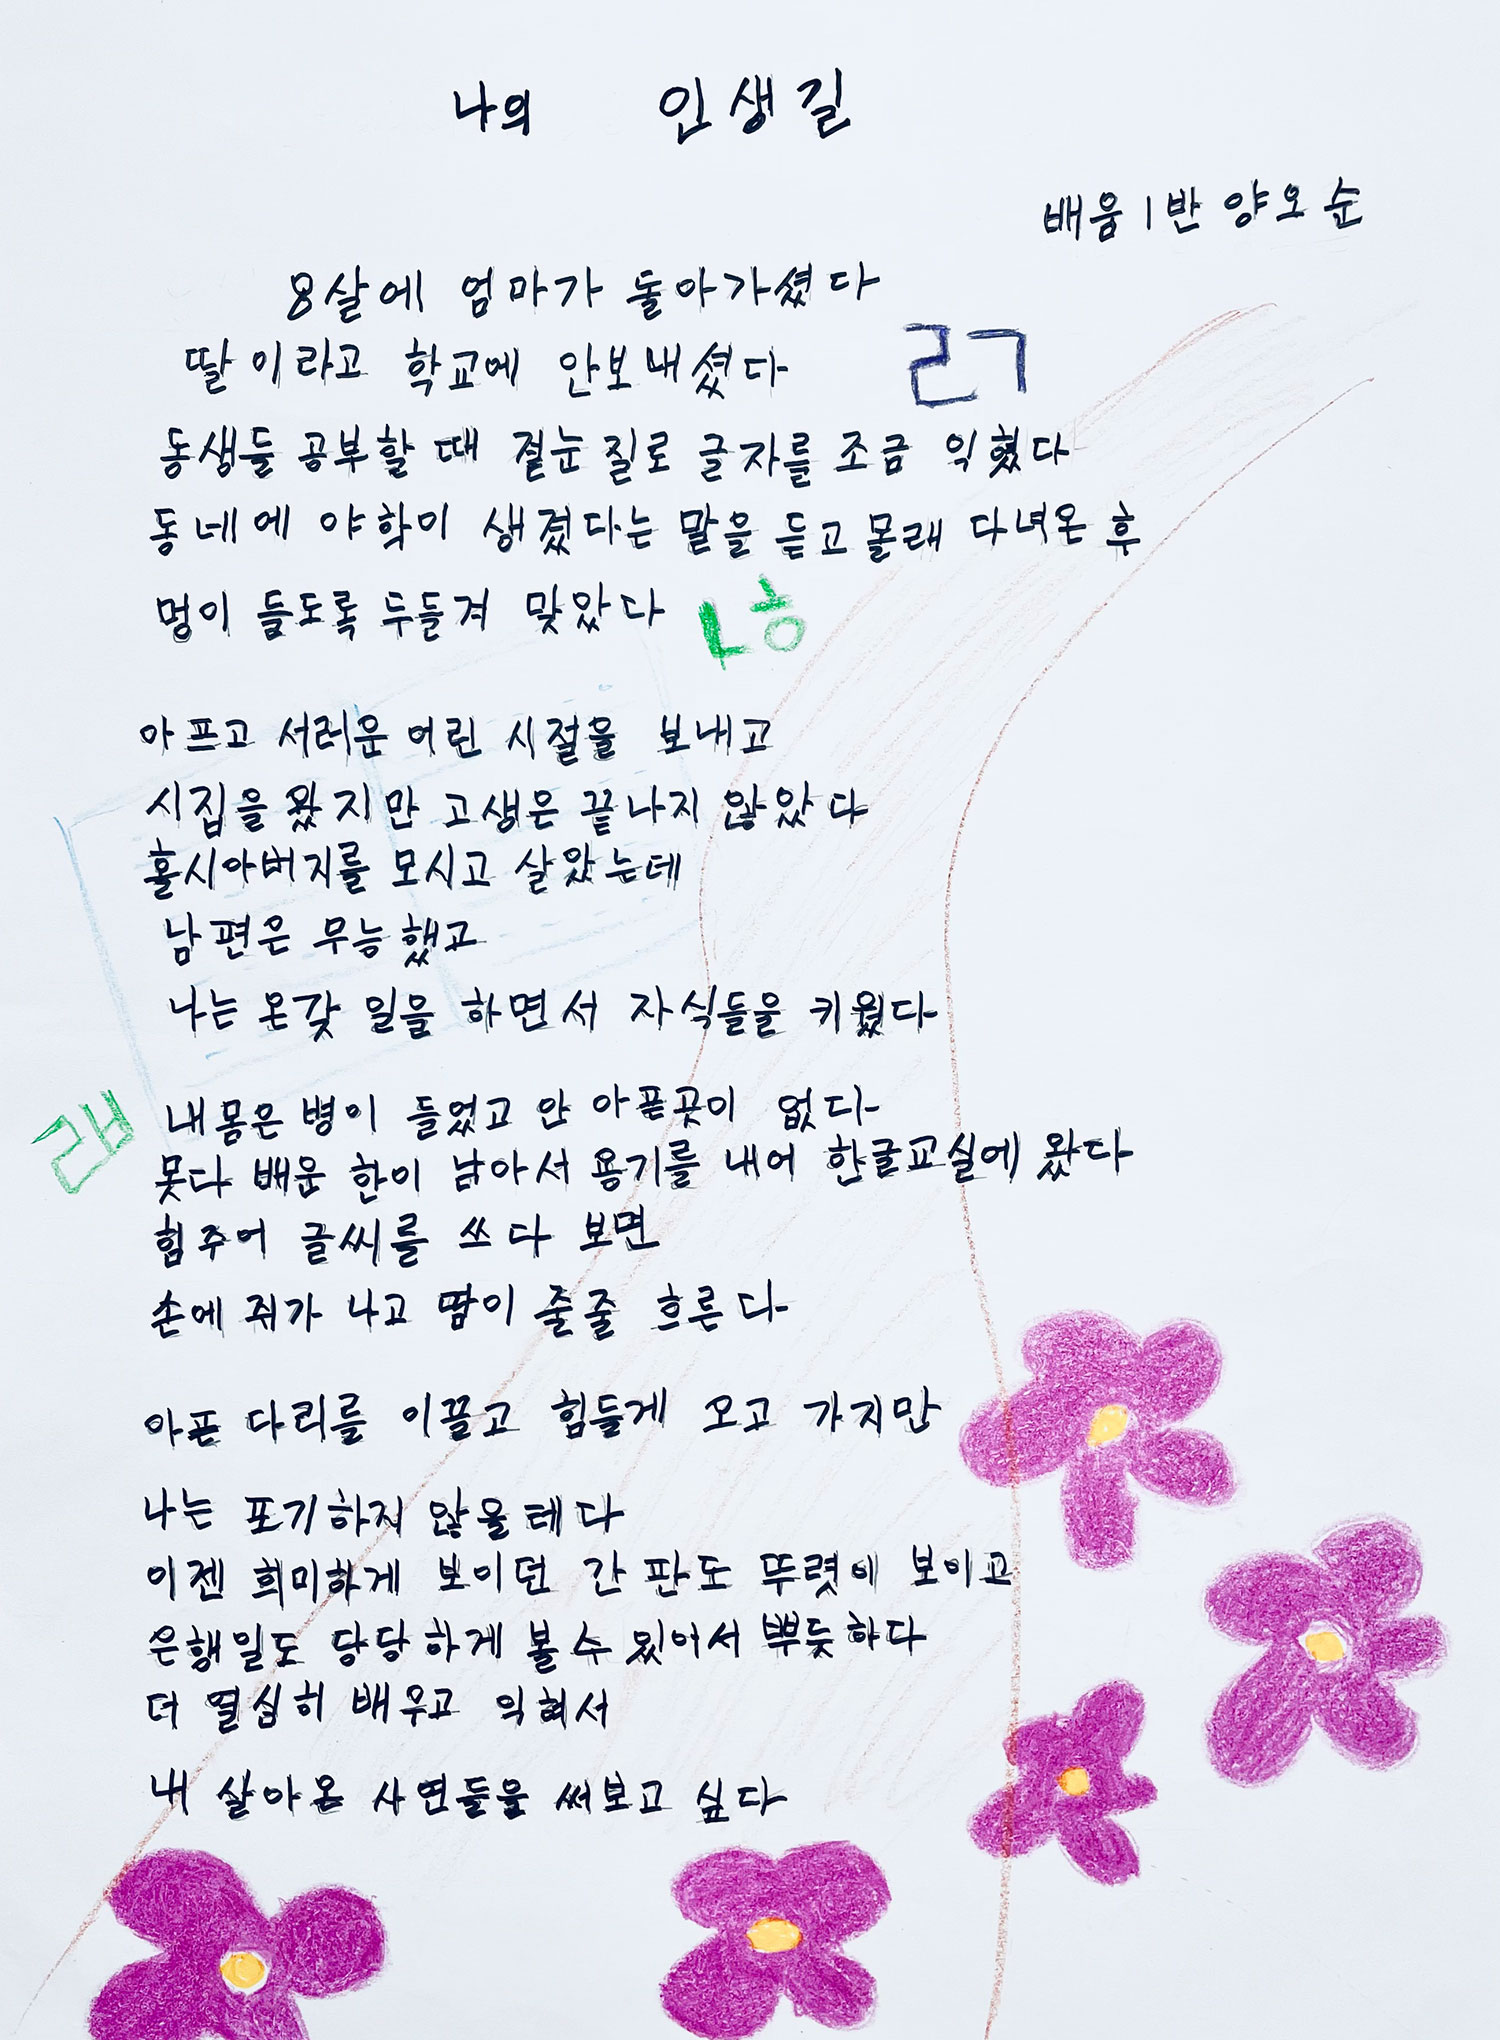 나의 인생길
배움1반 양오순
8살에 엄마가 돌아가셨다
딸이라고 학교에 안보내셨다
ㄹㄱ
동생들 공부할 때 곁눈질로 글자를 조금 익혔다
동네에 야학이 생겼다는 말을 듣고 몰래 다녀온 후
멍이 들도록 두들겨 맞았다
ㄴㅎ
아프고 서러운 어린 시절을 보내고
시집을 왔지만 고생은 끝나지 않았다
홀시아버지를 모시고 살았는데
남편은 무능했고
나는 온갖 일을 하면서 자식들을 키웠다
내몸은 병이 들었고 안 아픈곳이 없다
ㄹㅂ
못다 배운 한이 남아서 용기를 내어 한글교실에 왔다
힘주어 글씨를 쓰다 보면
손에 쥐가 나고 땀이 줄줄 흐른다
아픈 다리를 이끌고 힘들게 오고 가지만
나는 포기하지 않을테다
이젠 희미하게 보이던 간판도 뚜렷이 보이고
은행일도 당당하게 볼수 있어서 뿌듯하다
더 열심히 배우고 익혀서
내 살아온 사연들을 써보고 싶다